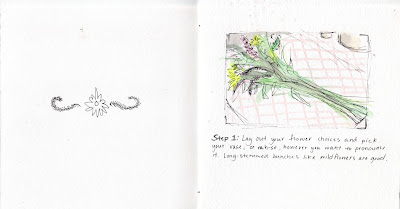 Step 1: Lay out your flower choices and pick
your vase, or vah-se, however you want to pronounce
it. Long-stemmed bunches like wildflowers are good.